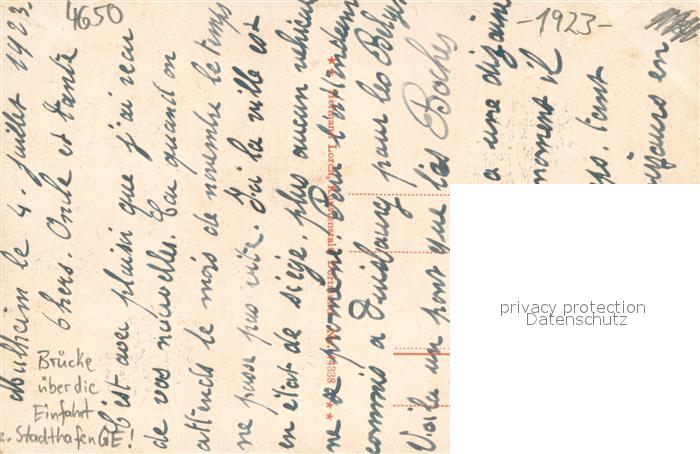 4650
-1923-
Mulheim le 4. juillet 1923
Chers. Oncle et tante
C'est avec plaisir que j'ai recu
de vos nouvelles. Car quand on
attends le mois de novembre le temps
ne passe pas vite. Ici la ville est
en état de siège. plus aucun véhicule
ne se promène. Pour l'attentat
commis a Duisbourg pour les Belges
Voila un pont que les Boches
a une dizaine
moment il
l'ont
toujours en
Hermann Lorch, Kunstanstalt, Dortmund
Brücke
über die
Einfahrt
z. Stadthafen GE!
privacy protection
Datenschutz